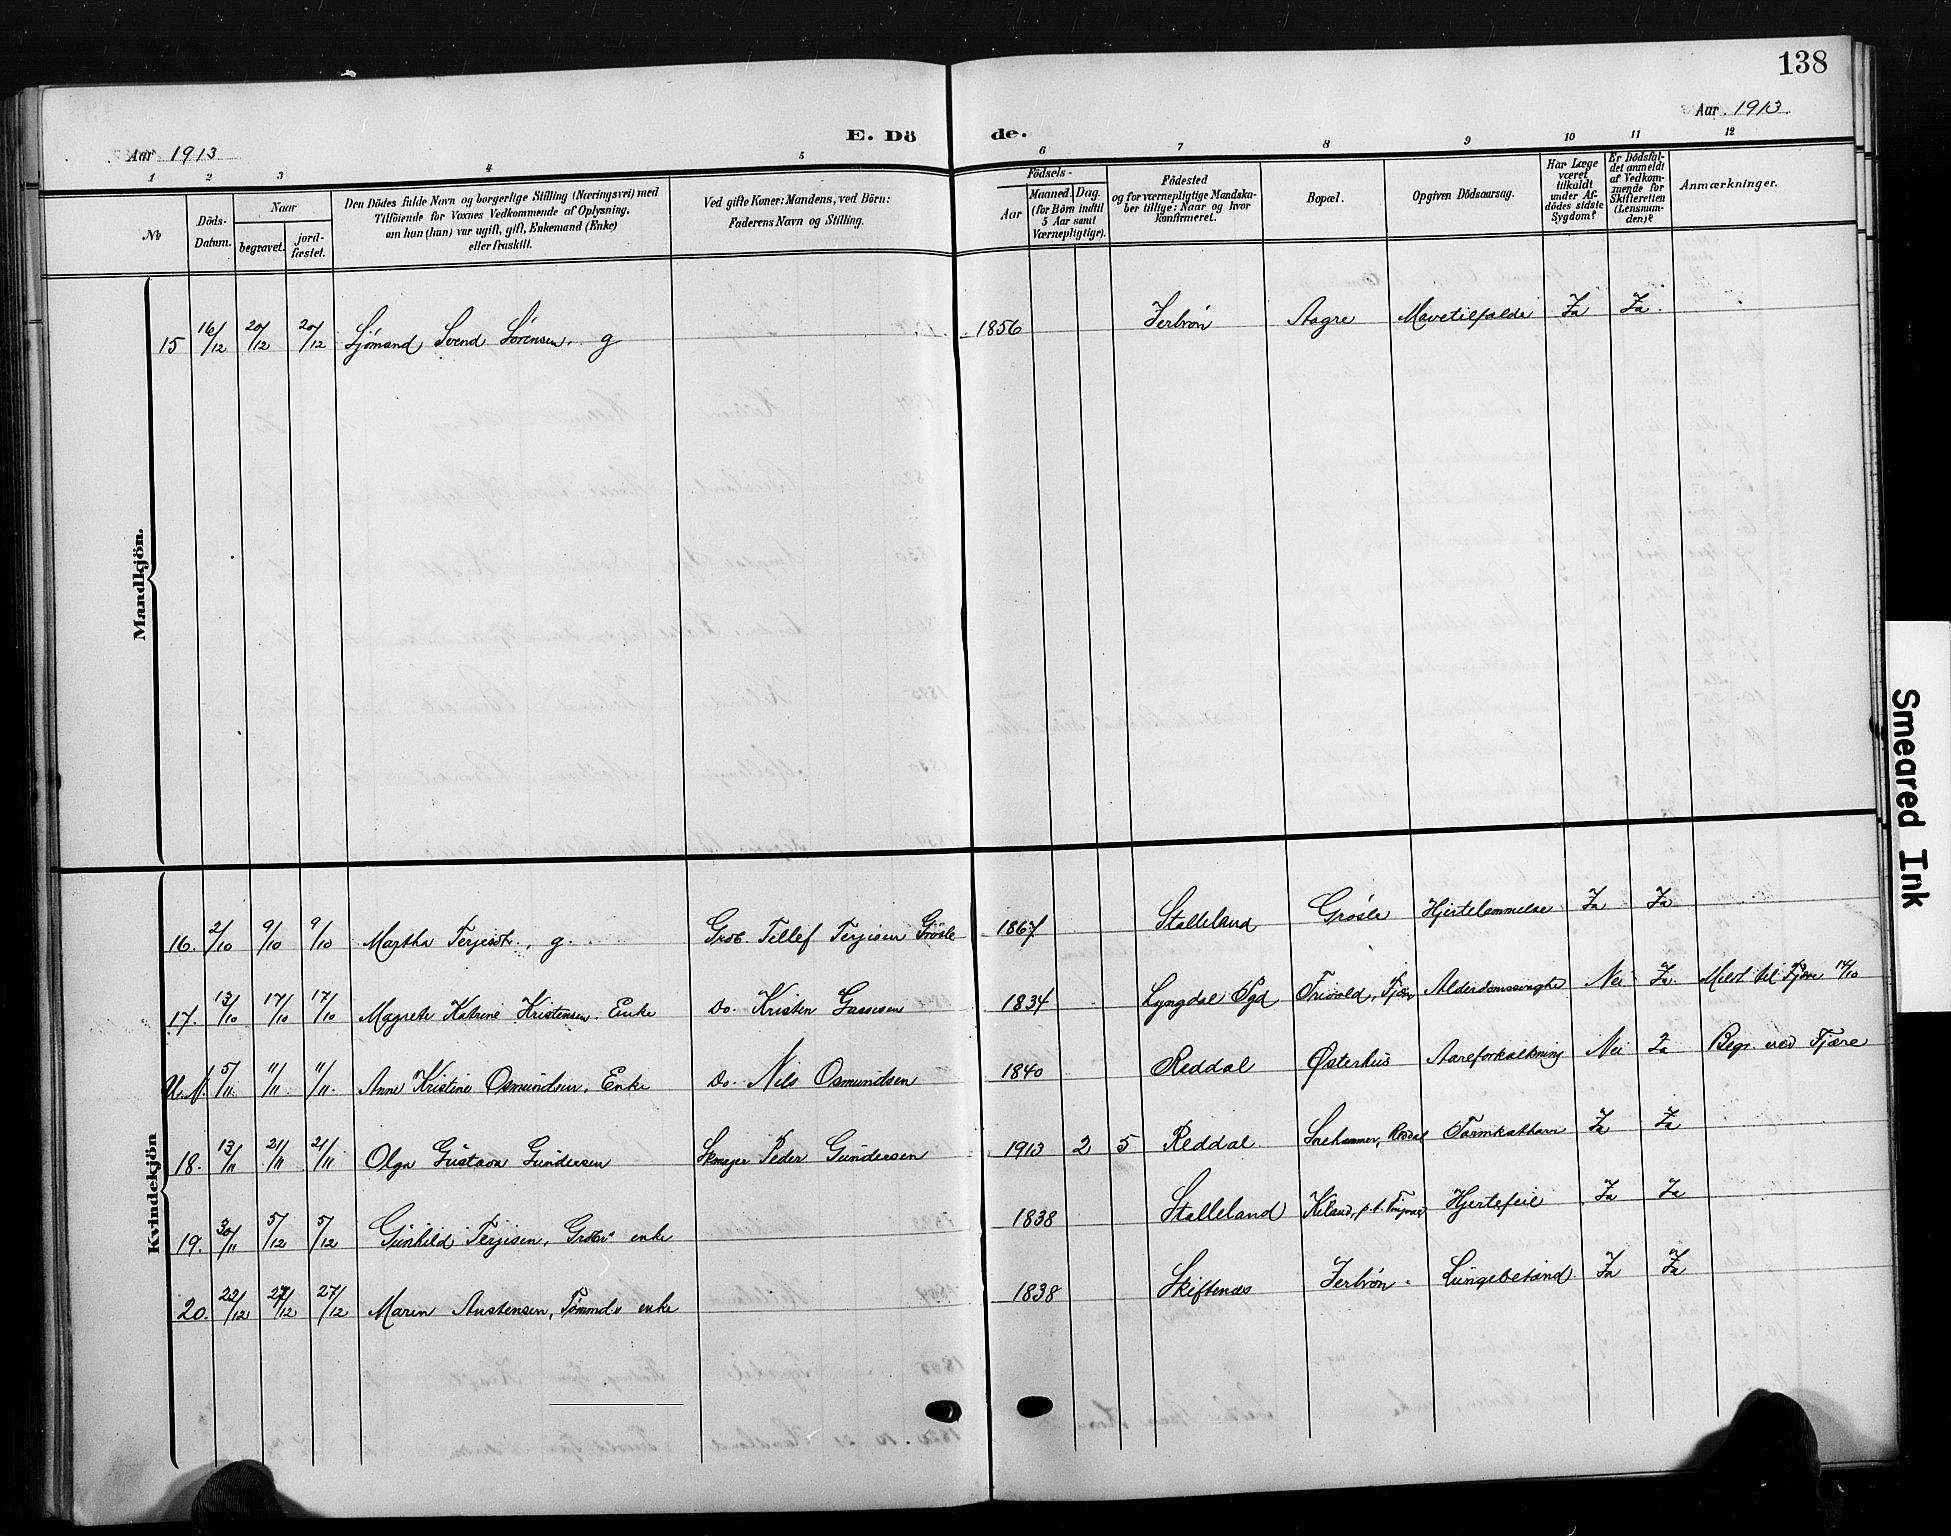 138
Aar 1913
E. Dö de.
Aar 1913
1 2 3 4 5 6 7 8 9 10 11 12
№
Döds-Datum.
Naar
begravet.
jord-fæstet.
Den Dödes fulde Navn og borgerlige Stilling (Næringsvei) med
Tilföiende for Voxnes Vedkommende af Oplysning,
om han (hun) var ugift, gift, Enkemand (Enke)
eller fraskilt.
Ved gifte Koner: Mandens, ved Börn:
Faderens Navn og Stilling.
Födsels-
Aar
Maaned. Dag.
(for Börn indtil
5 Aar samt
Værnepligtige).
Födested
og for værnepligtige Mandska-
ber tillige: Naar og hvor
konfirmeret.
Bopæl.
Opgiven Dödsaarsag.
Har Læge
været
tilkaldt
under Af-
dödes sidste
Sygdom?
Er Dödsfal-
det anmeldt
af Vedkom-
mende for
Skifteretten
(Lensman-
den)?
Anmærkninger.
Mandkjön.
15 16/12 20/12 20/12 Sjömand Svend Sörensen. g 1856 Jerbrön Aagre Mavetilfælde Ja Ja.
Kvindekjön
16. 2/10 9/10 9/10 Martha Terjesdtr., g. Grdb. Tellef Terjesen Grösle 1867 Stalleland Grösle Hjertelammelse Ja Ja
17. 13/10 17/10 17/10 Magrete Katrine Kristensen. Enke Do. Kristen Gassesen 1834 Lyngdal Pgd. Trivold, Fjære Alderdomssvaghet Nei Ja Meldt til Fjære 14/10
U. N. 5/11 11/11 11/11. Anne Kristine Osmundsen, Enke Do. Nils Osmundsen 1840 Reddal Østerhus Aareforkalkning Nei Ja Begr. ved Fjære
18. 13/11 21/11 21/11 Olga Gustava Gundersen Skomager Peder Gundersen 1913 2 5 Reddal. Reddal Tarmkatharr Ja Ja
19. 30/11 5/12 5/12 Gunhild Terjesen, enke 1838 Stalleland Hjertefeil Ja Ja
20. 22/12 27/12 27/12 Maren Austensen, enke 1838 Skiftenæs Jerbrön Lungebetænd. Ja Ja
Smeared Ink